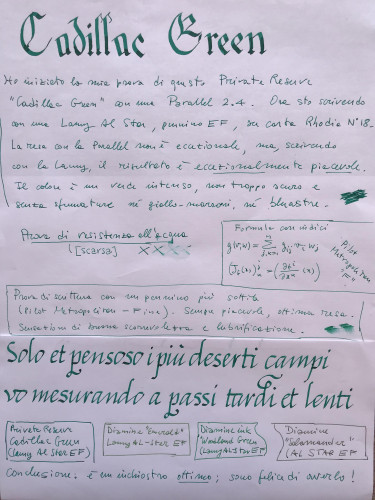 Cadillac Green
Ho iniziato la mia prova di questo Private Reserve
"Cadillac Green" con una Parallel 2.4. Ora sto scrivendo
con una Lamy Al Star, pennino EF, su carta Rhodia N°18.
La resa con la Parallel non è eccezionale, ma, scrivendo
con la Lamy, il risultato è eccezionalmente piacevole.
Il colore è un verde intenso, non troppo scuro e
senza sfumature né giallo-marroni, né bluastre.
Prova di resistenza all'acqua
[scarsa] XXXX
Formula con indici
g(v,w) = Σ g_ij v_i w_j
Pilot
Metropolitan
"F"
Prova di scrittura con un pennino più sottile
(Pilot Metropolitan - Fine). Sempre piacevole, ottima resa.
Sensazioni di buona scorrevolezza e lubrificazione.
Solo et pensoso i più deserti campi
vo mesurando a passi tardi et lenti
Private Reserve
Cadillac Green
(Lamy Al Star EF)
Diamine "Emerald"
Lamy AL-Star EF
Diamine Ink
"Woodland Green"
(Lamy AL STAR EF)
Diamine
"Salamander"
(AL STAR EF)
Conclusione: è un inchiostro ottimo; sono felice di averlo!